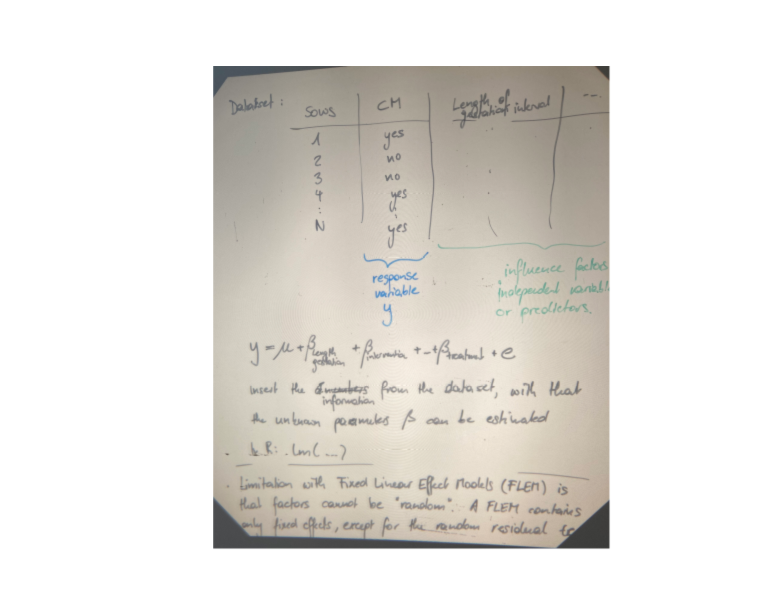 Dataset:
Sows CM Length of gestation interval ...
1 yes
2 no
3 no
4 yes
: :
N yes
response variable y
influence factors
independent variabl
or predictors.
y = μ + β length gestation + β intervention + -- + β treatment + e
insert the numbers information from the dataset, with that
the unknown parameters β can be estimated
. R: lm(...)
. Limitation with Fixed Linear Effect Models (FLEM) is
that factors cannot be "random". A FLEM contains
only fixed effects, except for the random residual te